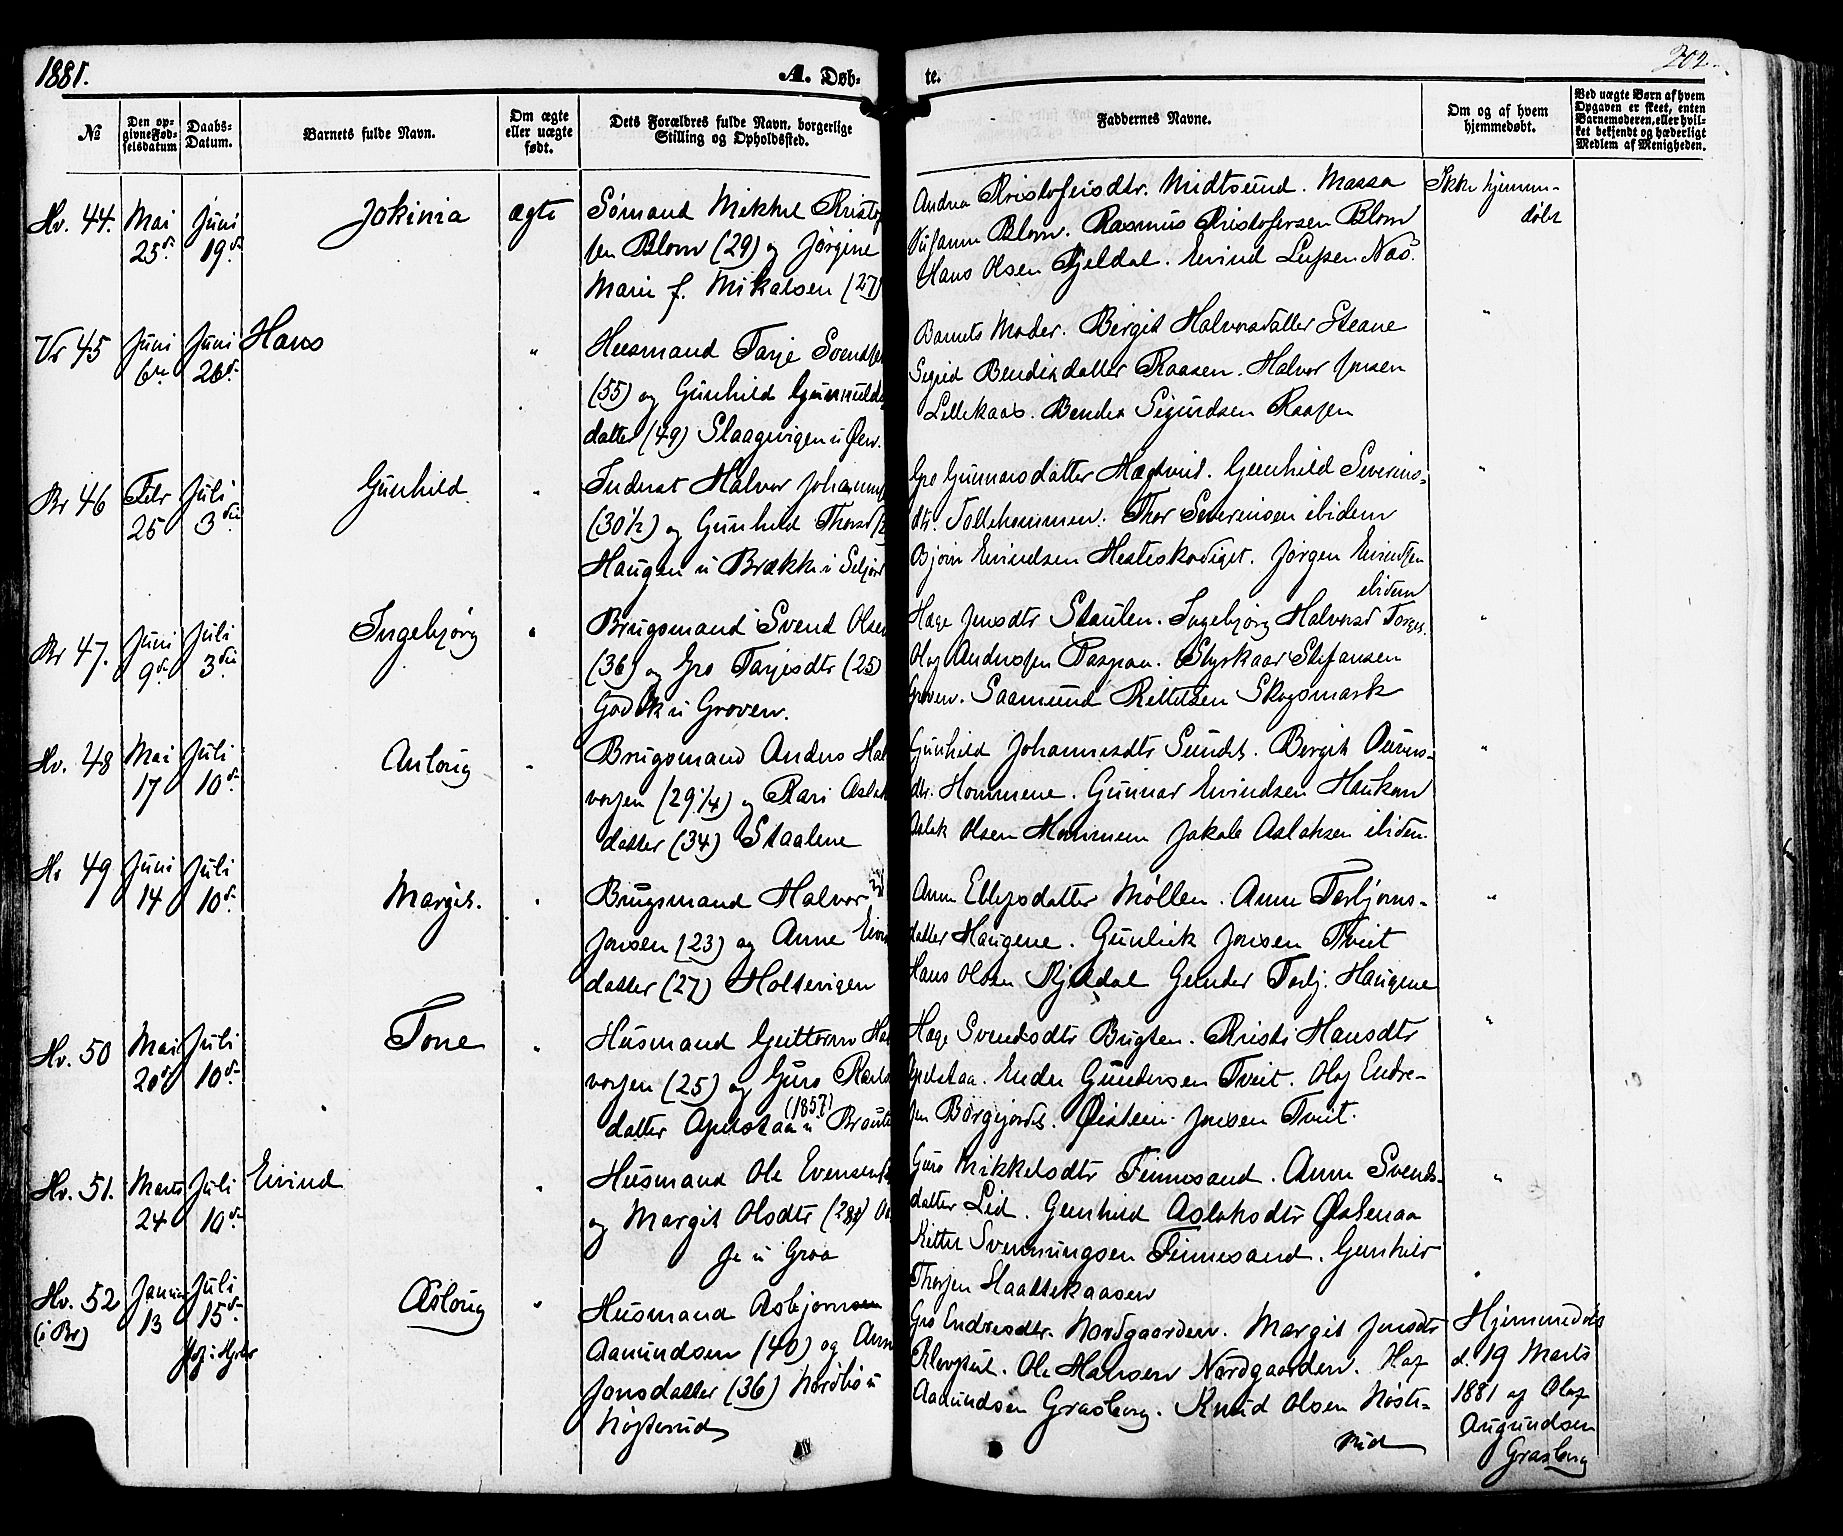 1881.
A. Døb-
te.
202.
№
Den op-
givne Fød-
selsdatum
Daabs-
Datum.
Barnets fulde Navn.
Om ægte
eller uægte
født.
Dets Forældres fulde Navn, borgerlige
Stilling og Opholdssted.
Faddernes Navne.
Om og af hvem
hjemmedøbt.
Ved uægte Børn af hvem
Opgaven er skeet, enten
Barnemoderen, eller hvil-
ket bekjendt og hæderligt
Medlem af Menigheden.
Hv. 44.
Mai
25de
Juni
19de
Jokinia
ægte
Sömand Mikkel Kristof
sen Blom (29) og Jørgine
Marie f. Mikalsen (27)
Andrea Kristofersdtr. Midtsund. Massa
Susanne Blom. Rasmus Kristofersen Blom
Hans Olsen Kjeldal. Eivind Næs.
Ikke hjemme-
döbt
Vr 45
Juni
6te
Juni
26de
Hans
"
Husmand Tarje Svendsen
(55) og Gunhild Gunnulds
datter (49) Slaagevigen u
Barnets Moder. Birgit Halvorsdatter Steane
Sigrid Bendixdatter Raasen. Halvor Jonsen
Lillekaas. Bendix Sigurdsen Raasen
"
Br 46
Febr
25
Juli
3die
Gunhild
"
Inderst Halvor Johannes
(30½) og Gunhild Thorsd
Haugen u Brække i Seljord
Gro Gunnarsdatter Hægtveit. Gunhild Severins-
dtr. Tollehommen. Thor Severinsen ibidem
Bjørn Eivindsen Hesteskodiget. Jørgen Eivindsen
ibidem
"
Br 47.
Juni
9de
Juli
3die
Ingebjörg
"
Brugsmand Svend Olsen
(36) og Gro Tarjesdtr (25)
u Groven.
Hæge Jensdtr Staulen. Ingebjörg Halvorsd
Olav Andersen Styrkaar Stefansen
Groven. Saamund Kittelsen Skogsmark
"
Hv. 48
Mai
17
Juli
10de
Anlaug
"
Brugsmand Anders Hal
vorsen (29 1/4) og Kari Aslak
datter (34) Staalene
Gunhild Johannesdtr Sundet. Bergit
dtr. Hommene. Gunnar Eivindsen Haukom
Aslak Olsen Hommen Jakob Aslaksen ibidem
"
Hv 49
Juni
14
Juli
10de
Margit.
"
Brugsmand Halvor
Jonsen (23) og Anne Eivin
datter (27) Holtevigen
Anne Ellefsdatter Møllen. Anne Torbjørns-
datter Haugene. Gunleik Jonsen Tveit
Hans Olsen Kjeldal Gunder Torbj. Haugene
"
Hv. 50
Mai
20de
Juli
10de
Tone
"
Husmand Guttorm Hal
vorsen (25) og Guro
(1857)
datter Apelstaa u
Hæge Svendsdtr Bugten. Kristi Hansdtr
Apelstaa. Ender Gundersen Tveit. Olav Endre-
sen Børgejordet. Øistein Jonsen Tveit.
"
Hv. 51.
Marts
24
Juli
10de
Eivind
"
Husmand Ole Evensen
og Margit Olsdtr (28)
u Groa
Guro Mikkelsdtr Finnesand. Anne Svends-
datter Lid. Gunhild Aslaksdtr
Kittel Svenningsen Finnesand. Gunhild
Thorsen Staattekaasen
"
Hv. 52
(i Br)
Januar
13
Juli
15de
Aslaug
"
Husmand Asbjørnsen
Aamundsen (40) og Anne
Jonsdatter (36) Nordbö u
Nøsterud
Gro Endresdtr. Nordgaarden. Margit Jonsdtr
Ole Hansen Nordgaarden.
Aamundsen Grasberg. Knud Olsen Nøste-
rud
"
Hjemmedøbt
d. 19 Marts
1881 af Olaf
Augundsen
Grasberg